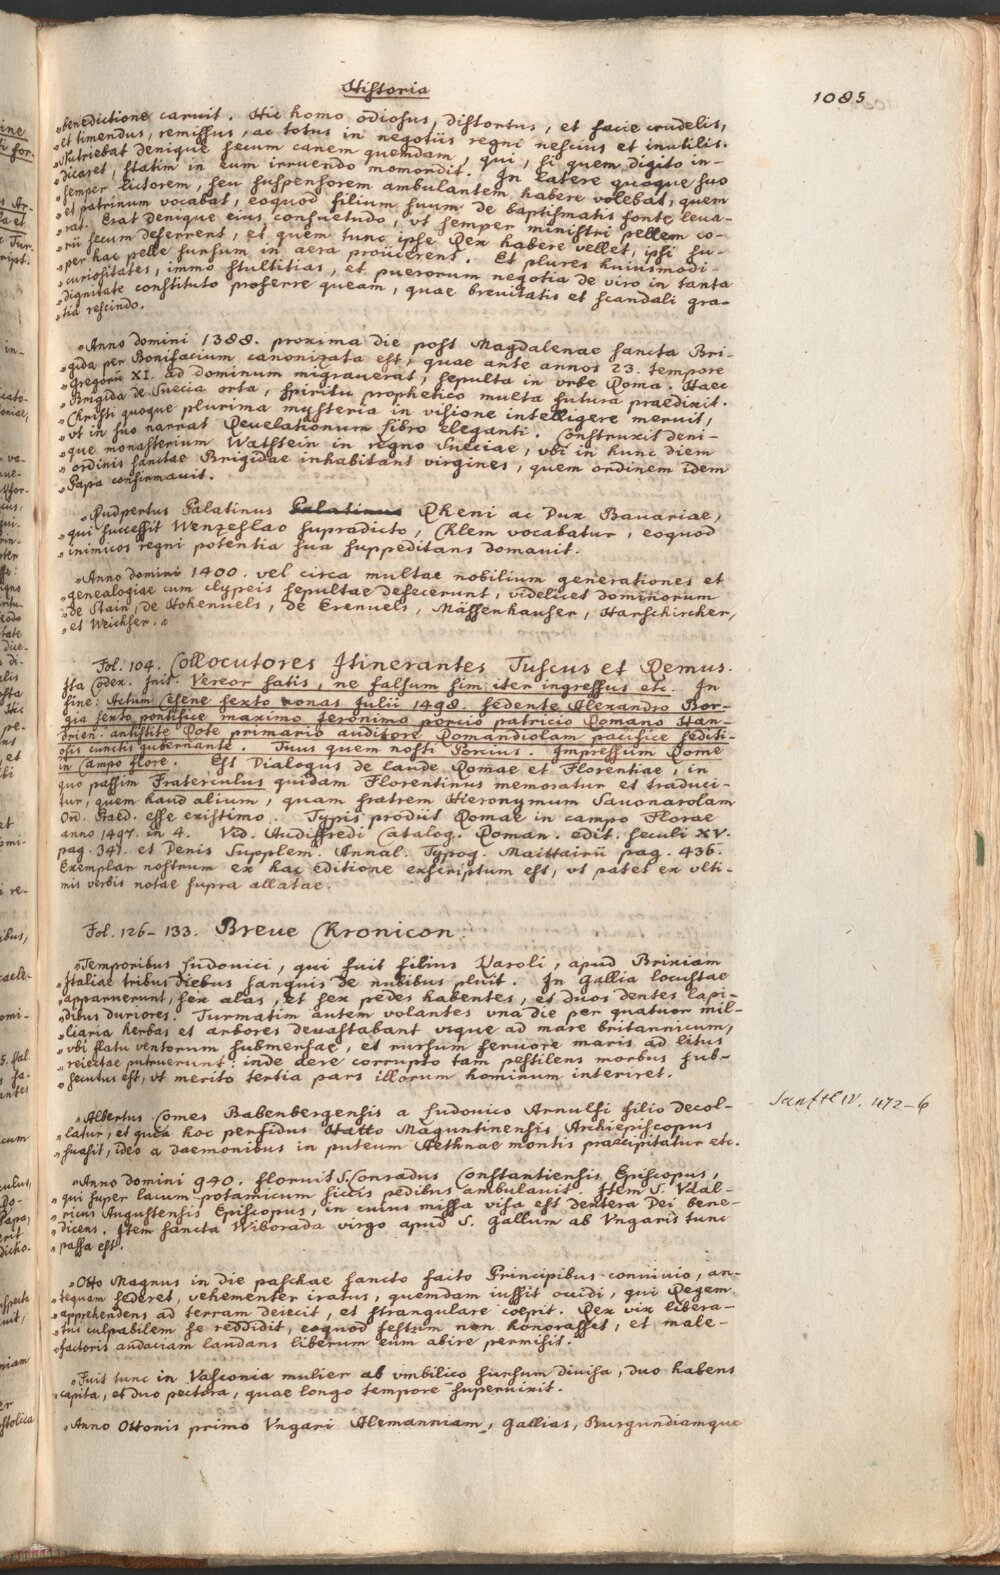 Historia
1085
"benedictione caruit. Hic homo odiosus, distortus, et facie crudelis,
"et timendus, remissus, ac totus in negotiis regni nescius et inutilis.
"Nutriebat denique secum canem quemdam, qui, si quem digito in-
"dicaret, statim in eum irruendo momordit. In latere quoque suo
"semper lictorem, seu suspensorem ambulantem habere volebat, quem
"et patrinum vocabat, eoquod filium suum de baptismatis fonte leua-
"rat. Erat denique eius consuetudo, vt semper ministri pellem co-
"rii secum deferrent, et quem tunc ipse Rex habere vellet, ipsi su-
"per hac pelle sursum in aera proiicerent. Et plures huiusmodi
"curiositates, immo stultitias, et puerorum negotia de viro in tanta
"dignitate constituto proferre queam, quae breuitatis et scandali gra-
"tia rescindo.
"Anno domini 1388. proxima die post Magdalenae sancta Bri-
"gida per Bonifacium canonizata est, quae ante annos 23. tempore
"Gregorii XI. ad dominum migrauerat, sepulta in vrbe Roma. Haec
"Brigida de Suecia orta, spiritu prophetico multa futura praedixit.
"Christi quoque plurima mysteria in visione intelligere meruit,
"vt in suo narrat Reuelationum libro eleganti. Construxit deni-
"que monasterium Watstein in regno Sueciae, vbi in hunc diem
"ordinis sanctae Brigidae inhabitant virgines, quem ordinem idem
"Papa confirmauit.
"Rudpertus Palatinus Palatinus Rheni ac Dux Bauariae,
"qui successit Wenzeslao supradicto, Clem vocabatur, eoquod
"inimicos regni potentia sua suppeditans domauit.
"Anno domini 1400. vel circa multae nobilium generationes et
"genealogiae cum clypeis sepultae defecerunt, videlicet dominorum
"de Stain, de Hohenuels, de Erenuels, Mässenhauser, Harskircher,
"et Weichser."
Fol. 104. Collocutores Itinerantes Tuscus et Remus.
Ita Codex. Init. Vereor satis, ne falsum sim iter ingressus etc. In
fine: Actum Cesene sexto nonas Julii 1498. sedente Alexandro Bor-
gia sexto pontifice maximo Jeronimo porcio patricio Romano Han-
drien. antistite Rote primario auditore Romandiolam pacifice sediti-
osis cunctis gubernante. Tuus quem nosti Porcius. Impressum Rome
in Campo flore. Est Dialogus de laude Romae et Florentiae, in
quo passim Fraterculus quidam Florentinus memoratur et traduci-
tur, quem haud alium, quam fratrem Hieronymum Sauonarolam
Ord. Praed. esse existimo. Typis prodiit Romae in campo Florae
anno 1497. in 4. Vid. Audiffredi Catalog. Roman. edit. seculi XV.
pag. 341. et Denis Supplem. Annal. Typog. Maittairii pag. 436.
Exemplar nostrum ex hac editione exscriptum est, vt patet ex vlti-
mis verbis notae supra allatae.
Fol. 126–133. Breue Chronicon.
"Temporibus Ludouici, qui fuit filius Karoli, apud Briniam
"Italiae tribus diebus sanguis de nubibus pluit. In Gallia locustae
"apparuerunt, sex alas, et sex pedes habentes, et duos dentes lapi-
"dibus duriores. Turmatim autem volantes vna die per quatuor mil-
"liaria herbas et arbores deuastabant vsque ad mare britannicum,
"vbi flatu ventorum submersae, et rursum feruore maris ad litus
"reiectae putruerunt: inde aere corrupto tam pestilens morbus sub-
"secutus est, vt merito tertia pars illorum hominum interiret.
"Albertus Comes Babenbergensis a Ludouico Arnulfi filio decol-
"latur, et quia hoc perfidus Hatto Maguntinensis Archiepiscopus
"suasit, ideo a daemonibus in puteum Aethnae montis praecipitatur etc.
Sanftl IV. 472–6
"Anno domini 940. floruit S. Conradus Constantiensis Episcopus,
"qui super lacum potamicum siccis pedibus ambulauit. Item S. Vdal-
"ricus Augustensis Episcopus, in cuius missa visa est dextera Dei bene-
"dicens. Item sancta Wiborada virgo apud S. Gallum ab Vngaris tunc
"passa est.
"Otto Magnus in die paschae sancto facto Principibus conuiuio, an-
"tequam sederet, vehementer iratus, quemdam iussit occidi, qui Regem
"apprehendens ad terram deiecit, et strangulare coepit. Rex vix libera-
"tus culpabilem se reddidit, eoquod festum non honorasset, et male-
"factoris audaciam laudans liberum eum abire permisit.
"Fuit tunc in Vasconia mulier ab vmbilico sursum diuisa, duo habens
"capita, et duo pectora, quae longo tempore superuixit.
"Anno Ottonis primo Vngari Alemanniam, Gallias, Burgundiamque